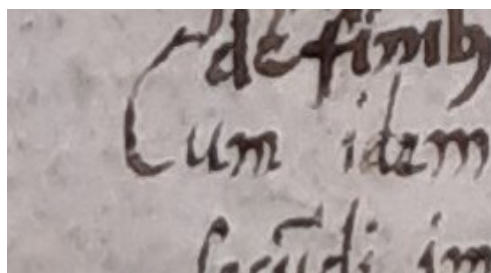 de finib
Cum idem
secūdi im